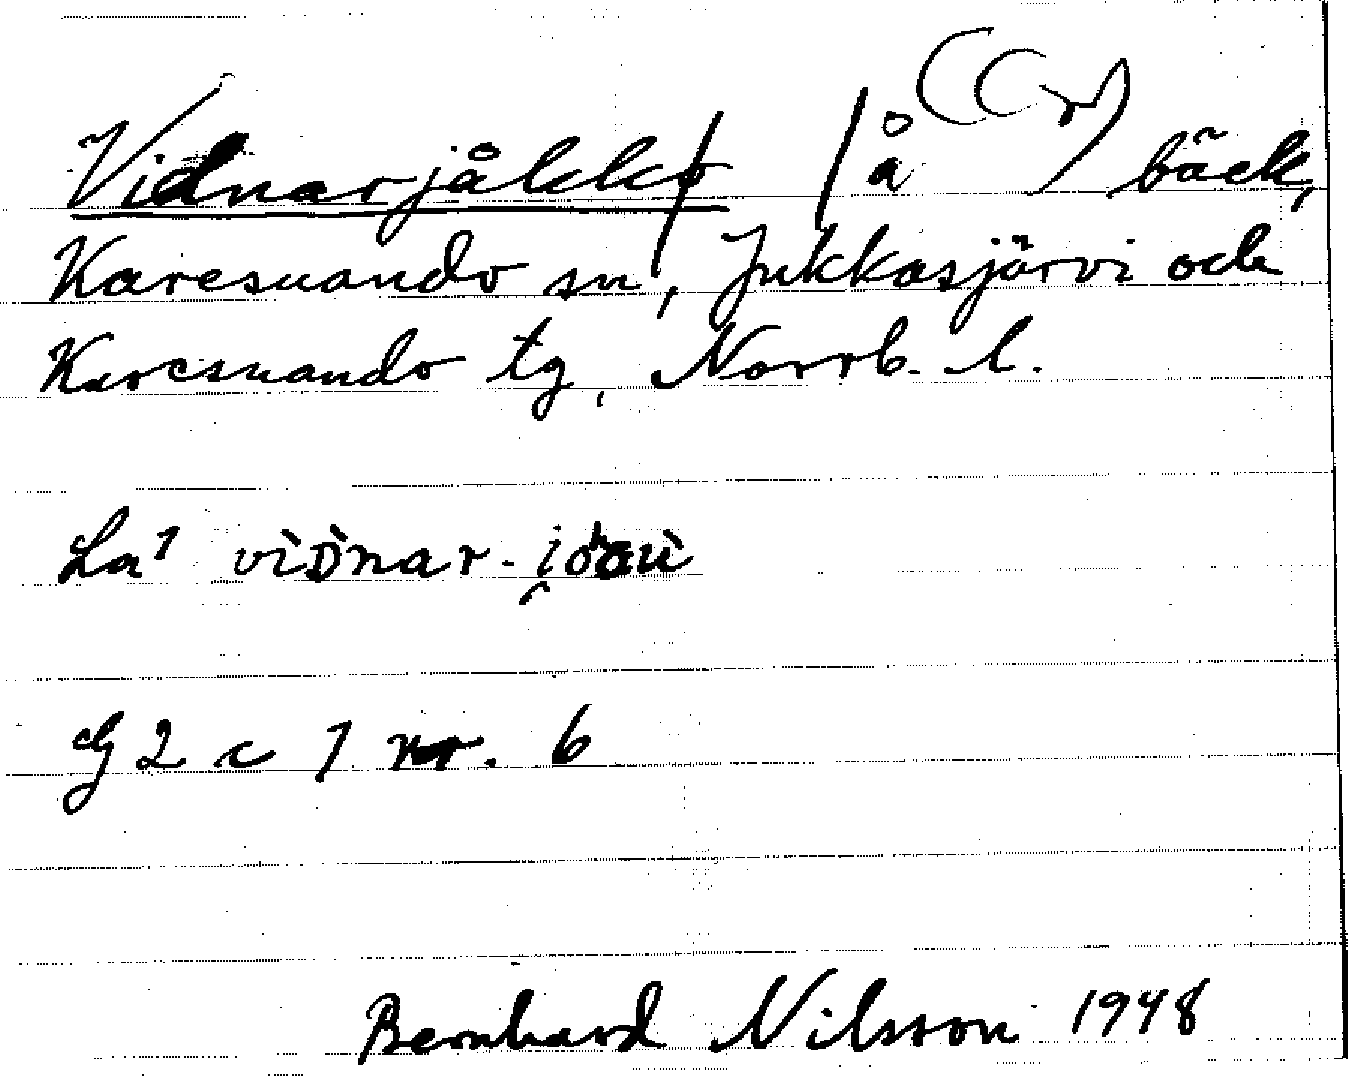 Vidnarjåkko å bäck,
Karesuando sn, Jukkasjärvi och
Karesuando tg, Norrb. l.
La¹ vìDnar-
G 2 c 1 nr. 6
Bernhard Nilsson 1948